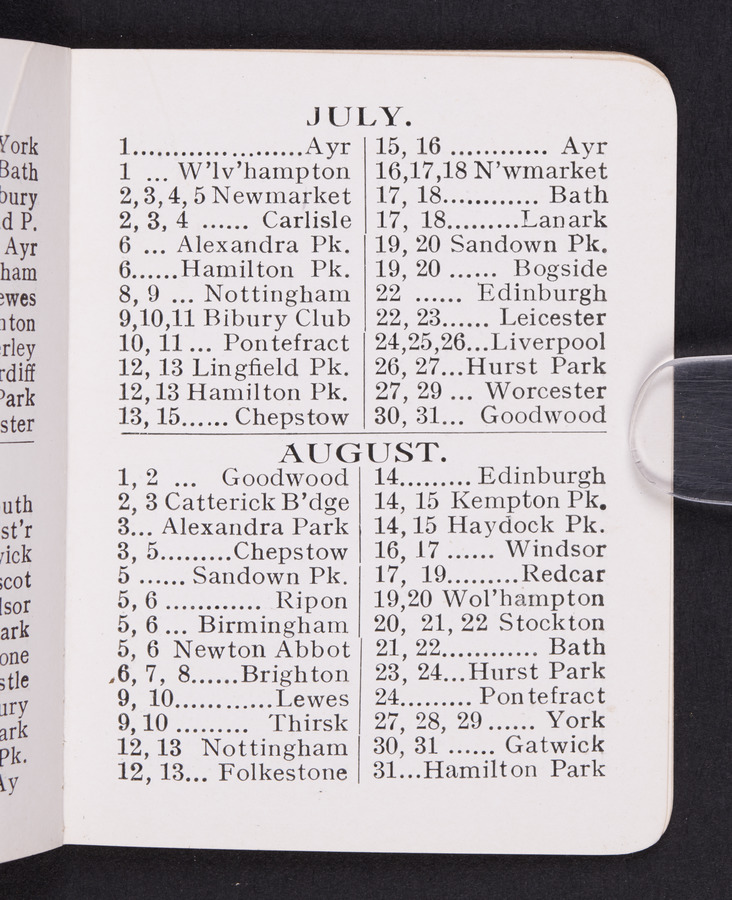 York
Bath
bury
d P.
Ayr
ham
ewes
nton
rley
rdiff
Park
ster
uth
st'r
vick
scot
lsor
ark
one
stle
ury
ark
Pk.
Ay
JULY.
1........................Ayr
1 ... W'lv'hampton
2, 3, 4, 5 Newmarket
2, 3, 4 ...... Carlisle
6 ... Alexandra Pk.
6......Hamilton Pk.
8, 9 ... Nottingham
9,10,11 Bibury Club
10, 11 ... Pontefract
12, 13 Lingfield Pk.
12, 13 Hamilton Pk.
13, 15...... Chepstow
15, 16 ............ Ayr
16,17,18 N'wmarket
17, 18............ Bath
17, 18.........Lanark
19, 20 Sandown Pk.
19, 20 ...... Bogside
22 ...... Edinburgh
22, 23...... Leicester
24,25,26...Liverpool
26, 27...Hurst Park
27, 29 ... Worcester
30, 31... Goodwood
AUGUST.
1, 2 ... Goodwood
2, 3 Catterick B'dge
3... Alexandra Park
3, 5.........Chepstow
5 ...... Sandown Pk.
5, 6 ............ Ripon
5, 6 ... Birmingham
5, 6 Newton Abbot
6, 7, 8......Brighton
9, 10............Lewes
9, 10 ......... Thirsk
12, 13 Nottingham
12, 13... Folkestone
14......... Edinburgh
14, 15 Kempton Pk.
14, 15 Haydock Pk.
16, 17 ...... Windsor
17, 19.........Redcar
19,20 Wol'hampton
20, 21, 22 Stockton
21, 22............ Bath
23, 24...Hurst Park
24......... Pontefract
27, 28, 29 ...... York
30, 31 ...... Gatwick
31...Hamilton Park